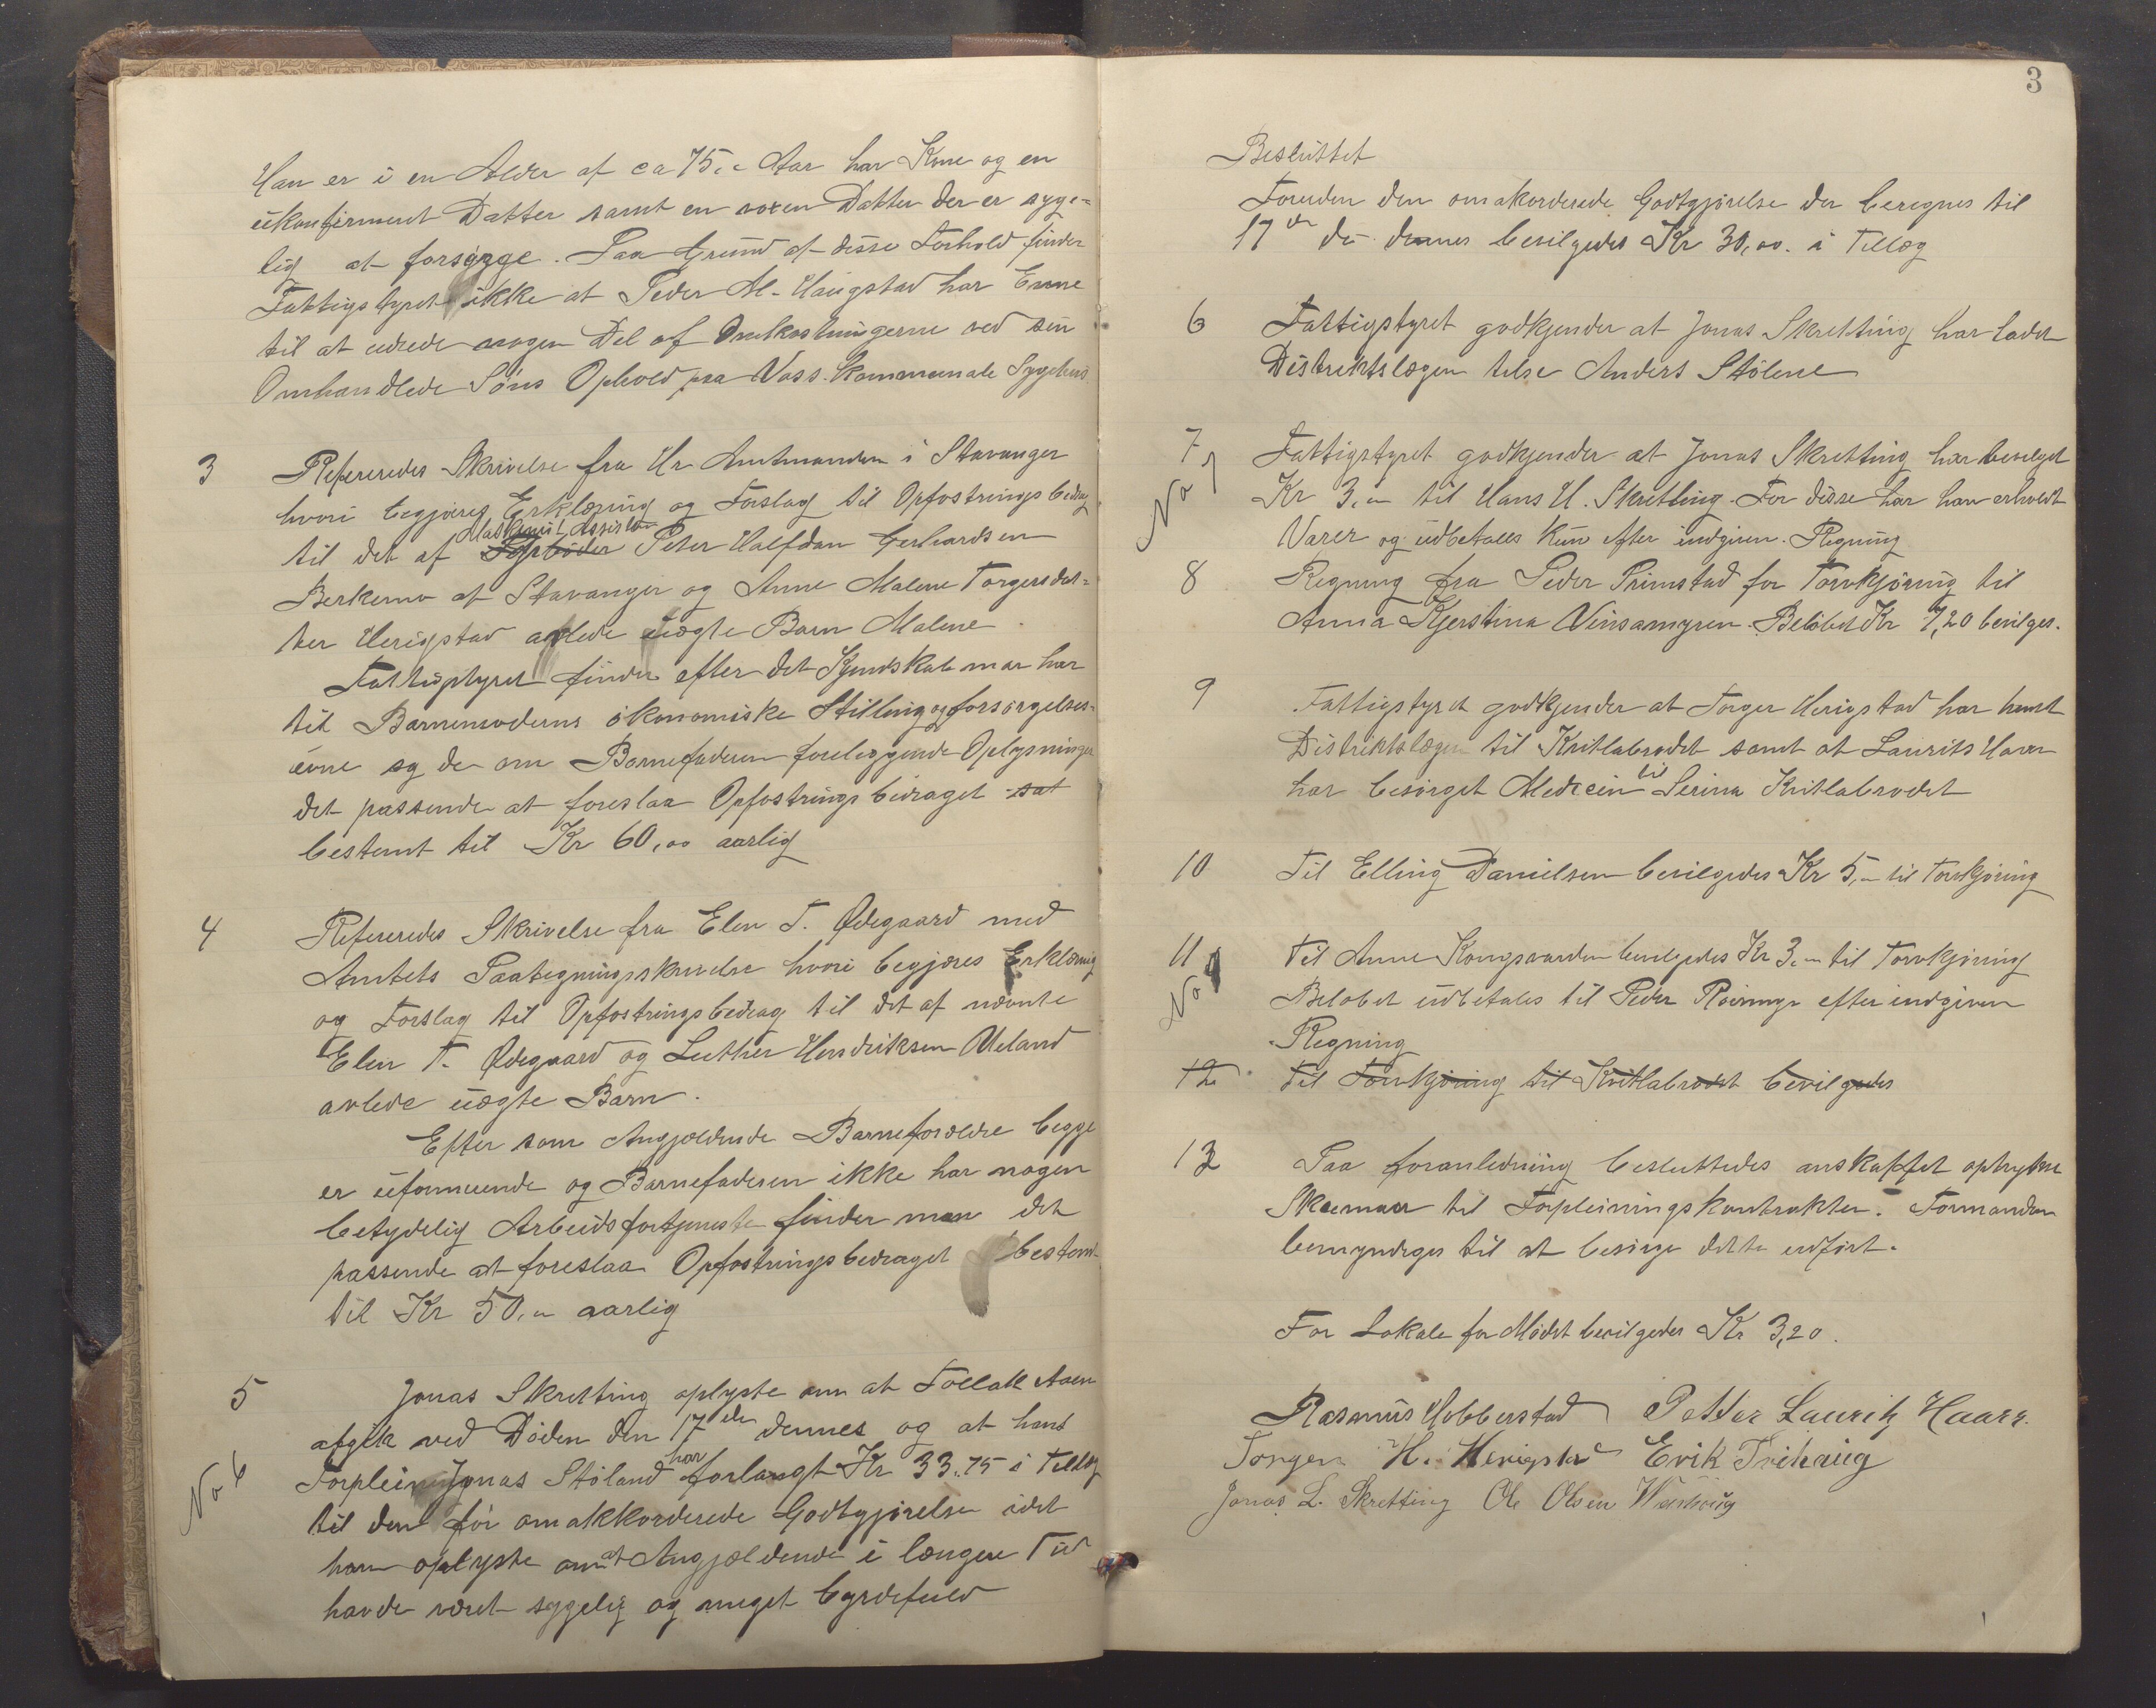 Han er i en Alder af ca 75,- Aar har Kone og en
ukonfirmeret Datter samt en voxen Datter der er syge-
lig at forsørge. Paa Grund af disse Forhold finder
Fattigstyret ikke at Peder M. Haugstad har Evne
til at udrede nogen Del af Omkostningerne ved sin
Omhandlede Søns Ophold paa Voss Kommunale Sygehus
3 Refereredes Skrivelse fra Hr Amtmanden i Stavanger
hvori begjæres Erklæring og Forslag til Opfostringsbidrag
Maskinist Assistent
til det af Peter Halfdan Gerhardsen
Berkemo af Stavanger og Anne Malene Torgersdat-
ter Herigstad avlede uægte Barn Malene
Fattigstyret finder efter det Kjendskab man har
til Barnemoderns økonomiske Stilling og forsørgelses-
evne og de om Barnefaderen foreliggende Oplysninger
det passende at foreslaa Opfostringsbidraget sat
bestemt til Kr 60,00 aarlig
4 Refereredes Skrivelse fra Elen T. Ødegaard med
Amtets Paategningsskrivelse hvori begjæres Erklæring
og Forslag til Opfostringsbidrag til det af nævnte
Elen T. Ødegaard og Luther Hendriksen Ueland
avlede uægte Barn.
Efter som Angjældende Barneforældre begge
er uformuende og Barnefaderen ikke har nogen
betydelig Arbeidsfortjeneste finder man det
passende at foreslaa Opfostringsbidraget bestemt
til Kr 50,- aarlig
5 Jonas Skretting oplyste om at Tollak Aaen
afgik ved Døden den 17de dennes og at hans
har
No 6 Forpleier Jonas Støland forlangt Kr 33,75 i Tillæg
til den før omakkorderede Godtgjørelse idet
han oplyste om at Angjældende i længere Tid
havde været sygelig og meget byrdefuld
3
Besluttet
Foruden den omakorderede Godtgjørelse der beregnes til
17de ds. dennes bevilgedes Kr 30,00. i Tillæg
6 Fattigstyret godkjender at Jonas Skretting har ladet
Distriktslægen tilse Anders Stølene
7 Fattigstyret godkjender at Jonas Skretting har bevilget
No 7 Kr 3,- til Hans H. Skretting. For disse har han erholdt
Varer og udbetales kun efter indgiven Regning
8 Regning fra Peder Primstad for Torvkjøring til
Anna Kjerstina Vinsamyren. Beløbet Kr 7,20 bevilges.
9 Fattigstyret godkjender at Torger Herigstad har hentet
Distriktslægen til Kvitlabrodet samt at Laurits Haarr
til
har besørget Medicin Serina Kvitlabrodet
10 Til Elling Danielsen bevilgedes Kr 5,- til Torvkjøring
11 Til Anne Kongsvarden bevilgedes Kr 3,- til Torvkjøring
No 9 Beløbet udbetales til Peder efter indgiven
Regning
12 Til Torvkjøring til Kvitlabrodet bevilgedes
13 Paa foranledning besluttedes anskaffet optrykte
Skemaer til Forpleiningskontrakter. Formanden
bemyndiges til at besørge dette udført.
For Lokale for Mødet bevilgedes Kr 3,20.
Rasmus Hobberstad Petter Laurits Haarr.
Torger H. Herigstad Erik Tvihaug
Jonas L. Skretting Ole Olsen